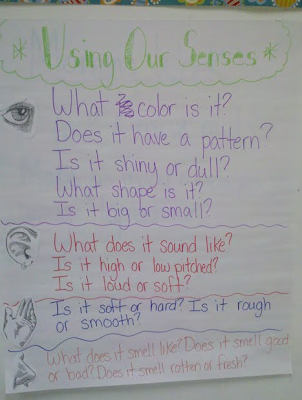 *Using Our Senses*
What color is it?
Does it have a pattern?
Is it shiny or dull?
What shape is it?
Is it big or small?
What does it sound like?
Is it high or low pitched?
Is it loud or soft?
Is it soft or hard? Is it rough
or smooth?
What does it smell like? Does it smell good
or bad? Does it smell rotten or fresh?